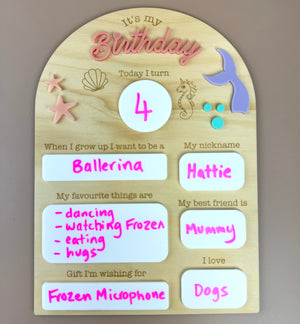 It's my
Birthday
Today I turn
4
When I grow up I want to be a
Ballerina
My nickname
Hattie
My favourite things are
- dancing
- watching Frozen
- eating
- hugs
My best friend is
Mummy
Gift I'm wishing for
Frozen Microphone
I love
Dogs